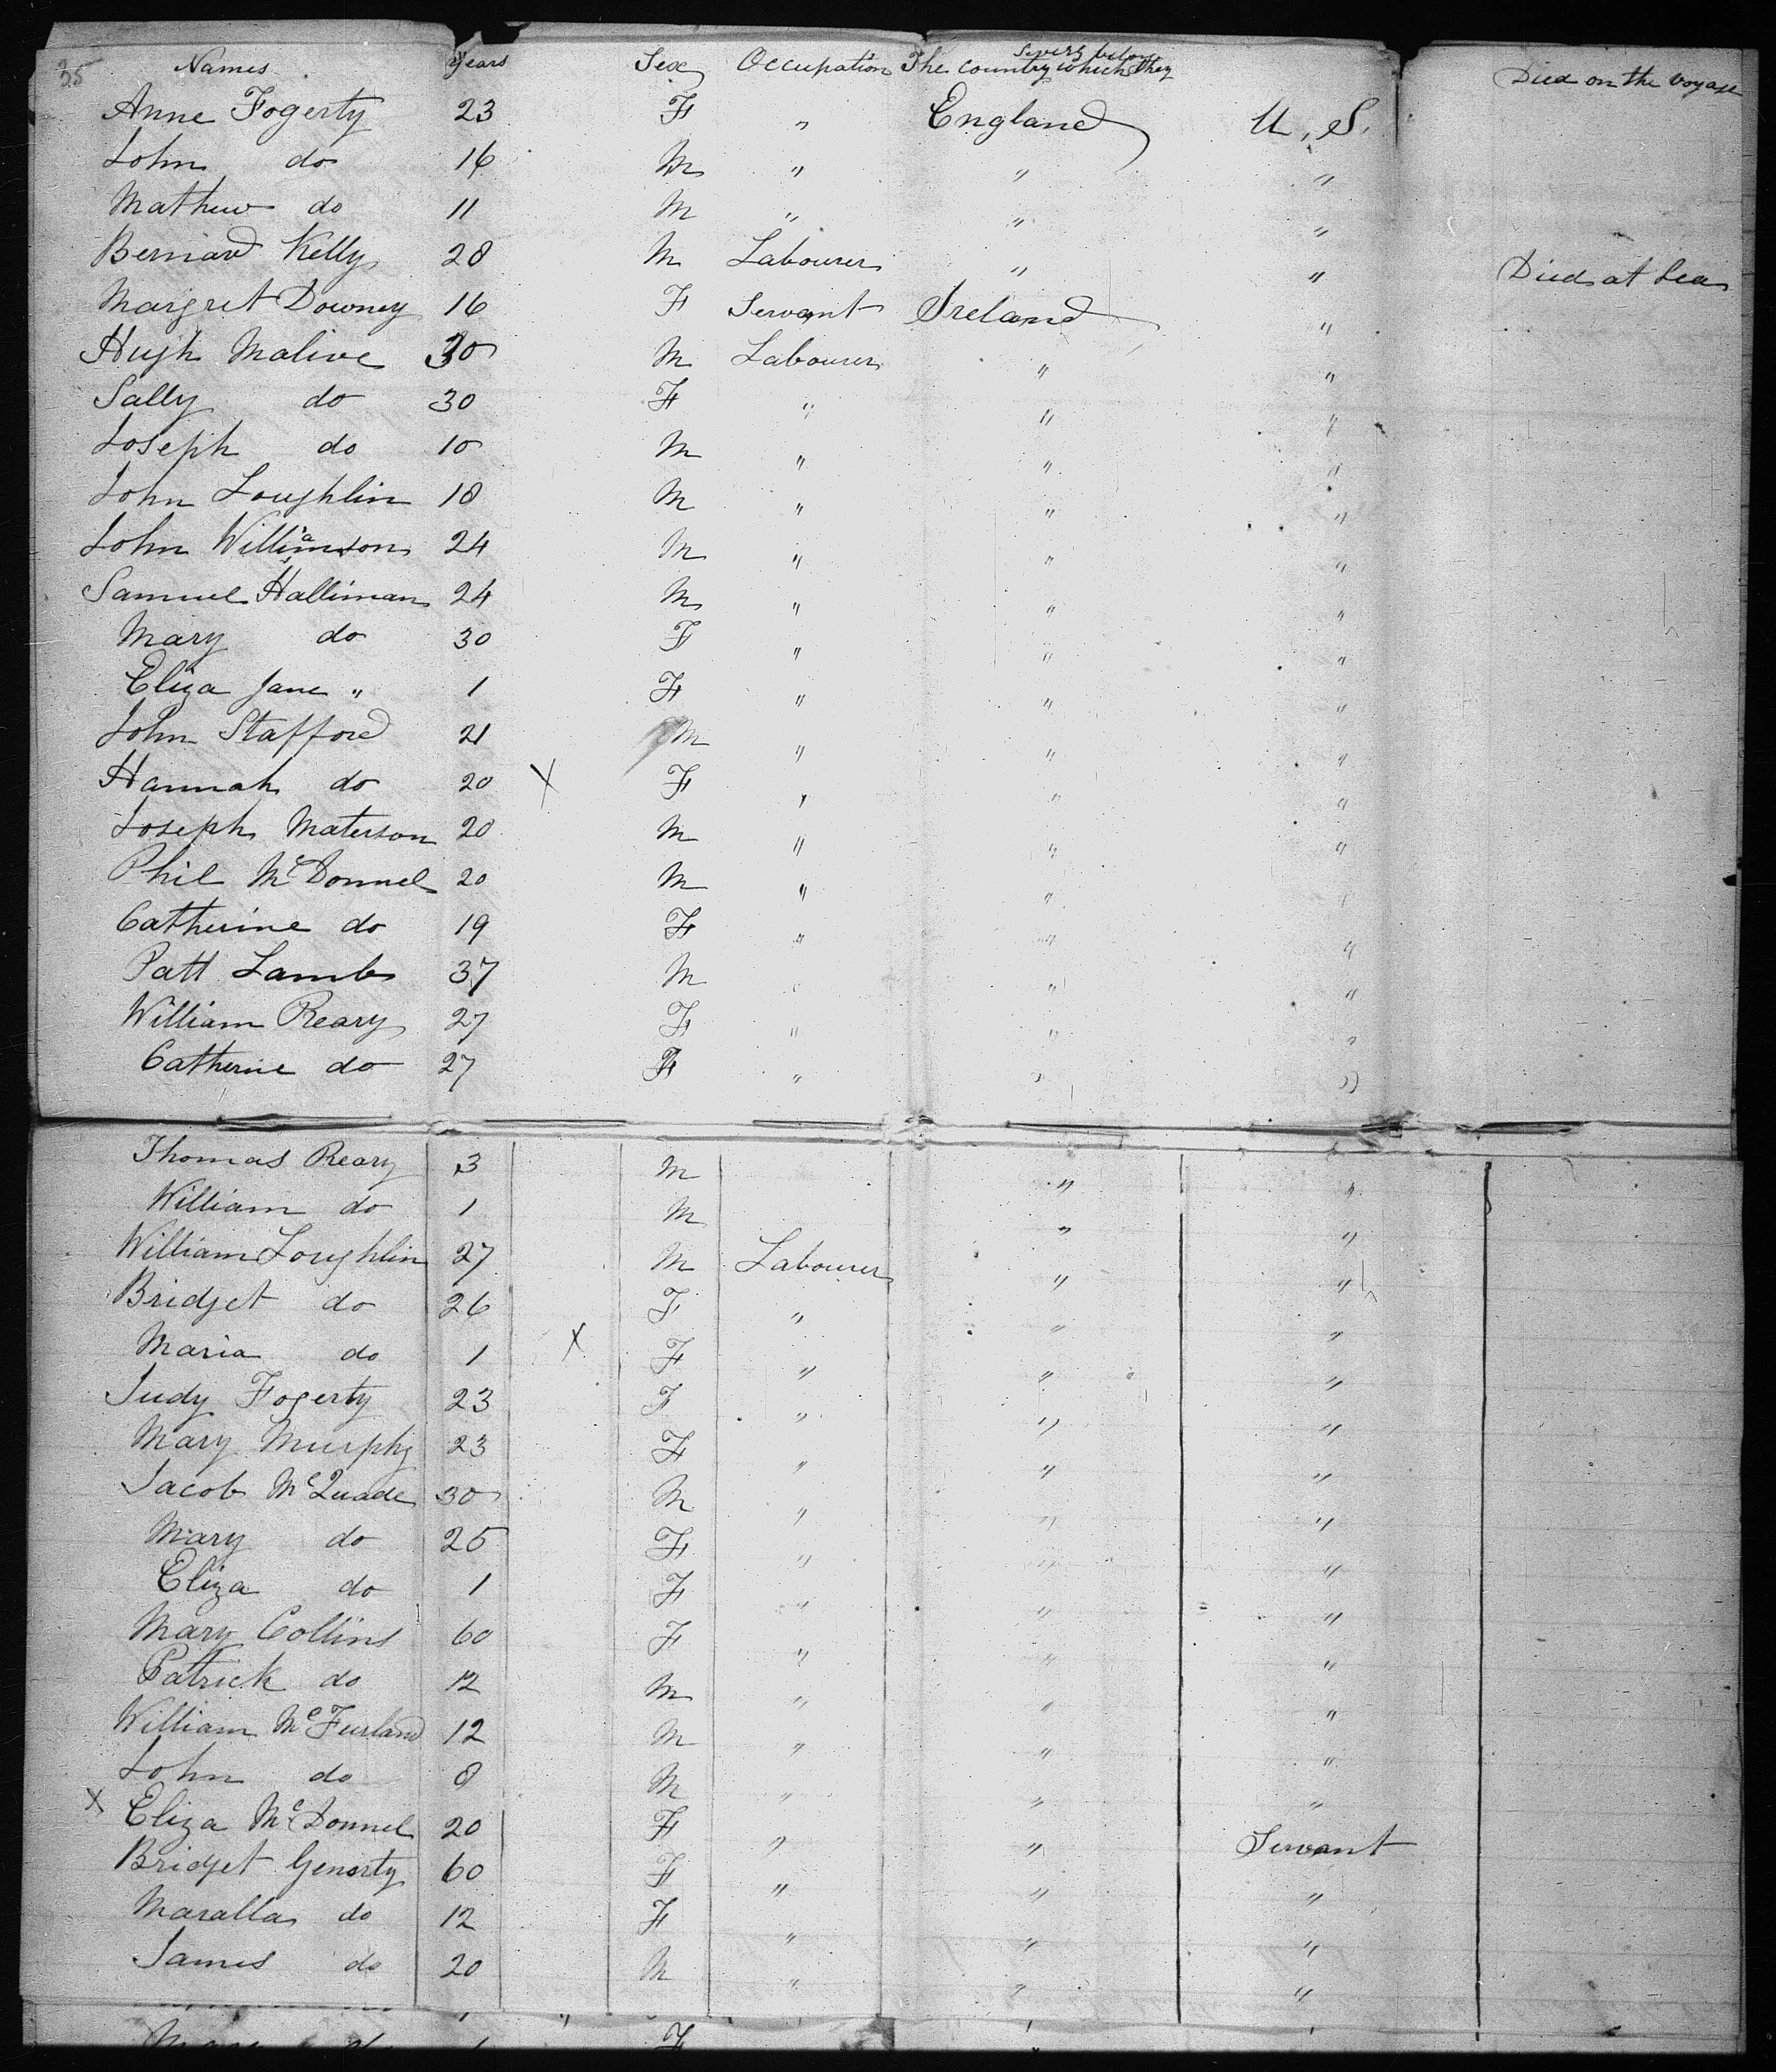 25
Names Years Sex Occupation The country which they severy belong Died on the Voyage
Anne Fogerty 23 F " England U. S.
John do 16 M " " "
Mathew do 11 M " " "
Bernard Kelly 28 M Labourer " " Died at Sea
Margret Downey 16 F Servant Ireland "
Hugh Malive 30 M Labourer " "
Sally do 30 F " " "
Joseph do 10 M " " "
John Loughlin 18 M " " "
John Williamson 24 M " " "
Samuel Halliman 24 M " " "
Mary do 30 F " " "
Eliza Jane " 1 F " " "
John Stafford 21 M " " "
Hannah do 20 X F " " "
Joseph Materson 20 M " " "
Phil McDonnel 20 M " " "
Catherine do 19 F " " "
Patt Lamb 37 M " " "
William Reary 27 F " " "
Catherine do 27 F " " "
Thomas Reary 3 M " "
William do 1 M " "
William Loughlin 27 M Labourer " "
Bridget do 26 F " " "
Maria do 1 X F " " "
Judy Fogerty 23 F " " "
Mary Murphy 23 F " " "
Jacob McQuade 30 M " " "
Mary do 25 F " " "
Eliza do 1 F " " "
Mary Collins 60 F " " "
Patrick do 12 M " " "
William McFurland 12 M " " "
John do 8 M " " "
X Eliza McDonnel 20 F " " Servant
Bridget Genorty 60 F " " "
Maralla do 12 F " " "
James do 20 M " " "